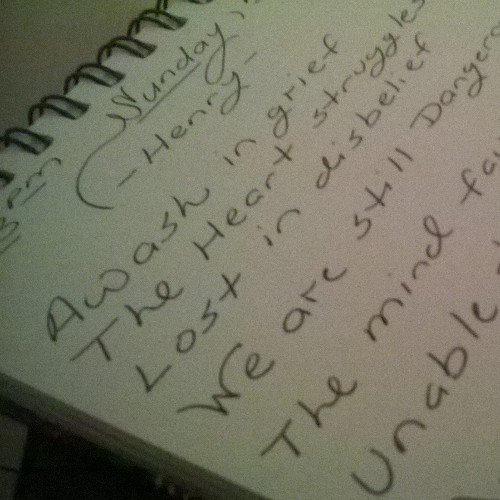 (Sunday,
- Henry -
Awash in grief
The Heart struggles
Lost in disbelief
We are still
The mind
Unable